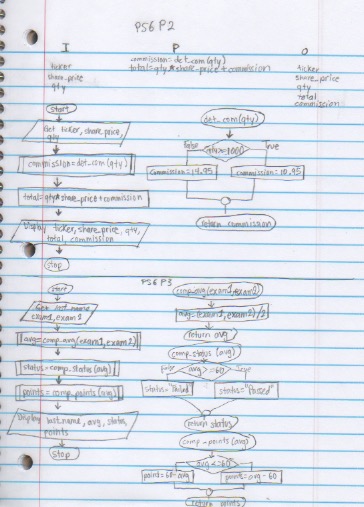 PS6 P2
I P O
commission=det_com(qty)
total=qty*share_price+commission
ticker
share_price
qty
ticker
share_price
qty
total
commission
start
Get ticker, share_price,
qty
commission=det_com(qty)
total=qty*share_price+commission
Display ticker, share_price, qty,
total, commission
stop
det_com(qty)
false
True
commission=10.95
return commission
PS6 P3
start
Get last_name
exam1, exam2
avg=comp_avg(exam1,exam2)
status=comp_status(avg)
points=comp_points(avg)
Display last_name, avg, status,
points
stop
comp_avg(exam1,exam2)
avg=(exam1,exam2)/2
return avg
comp_status(avg)
avg >=60
status="Failed"
status="Passed"
return status
comp-points(avg)
avg<=60
point=60-avg
points=avg-60
return points